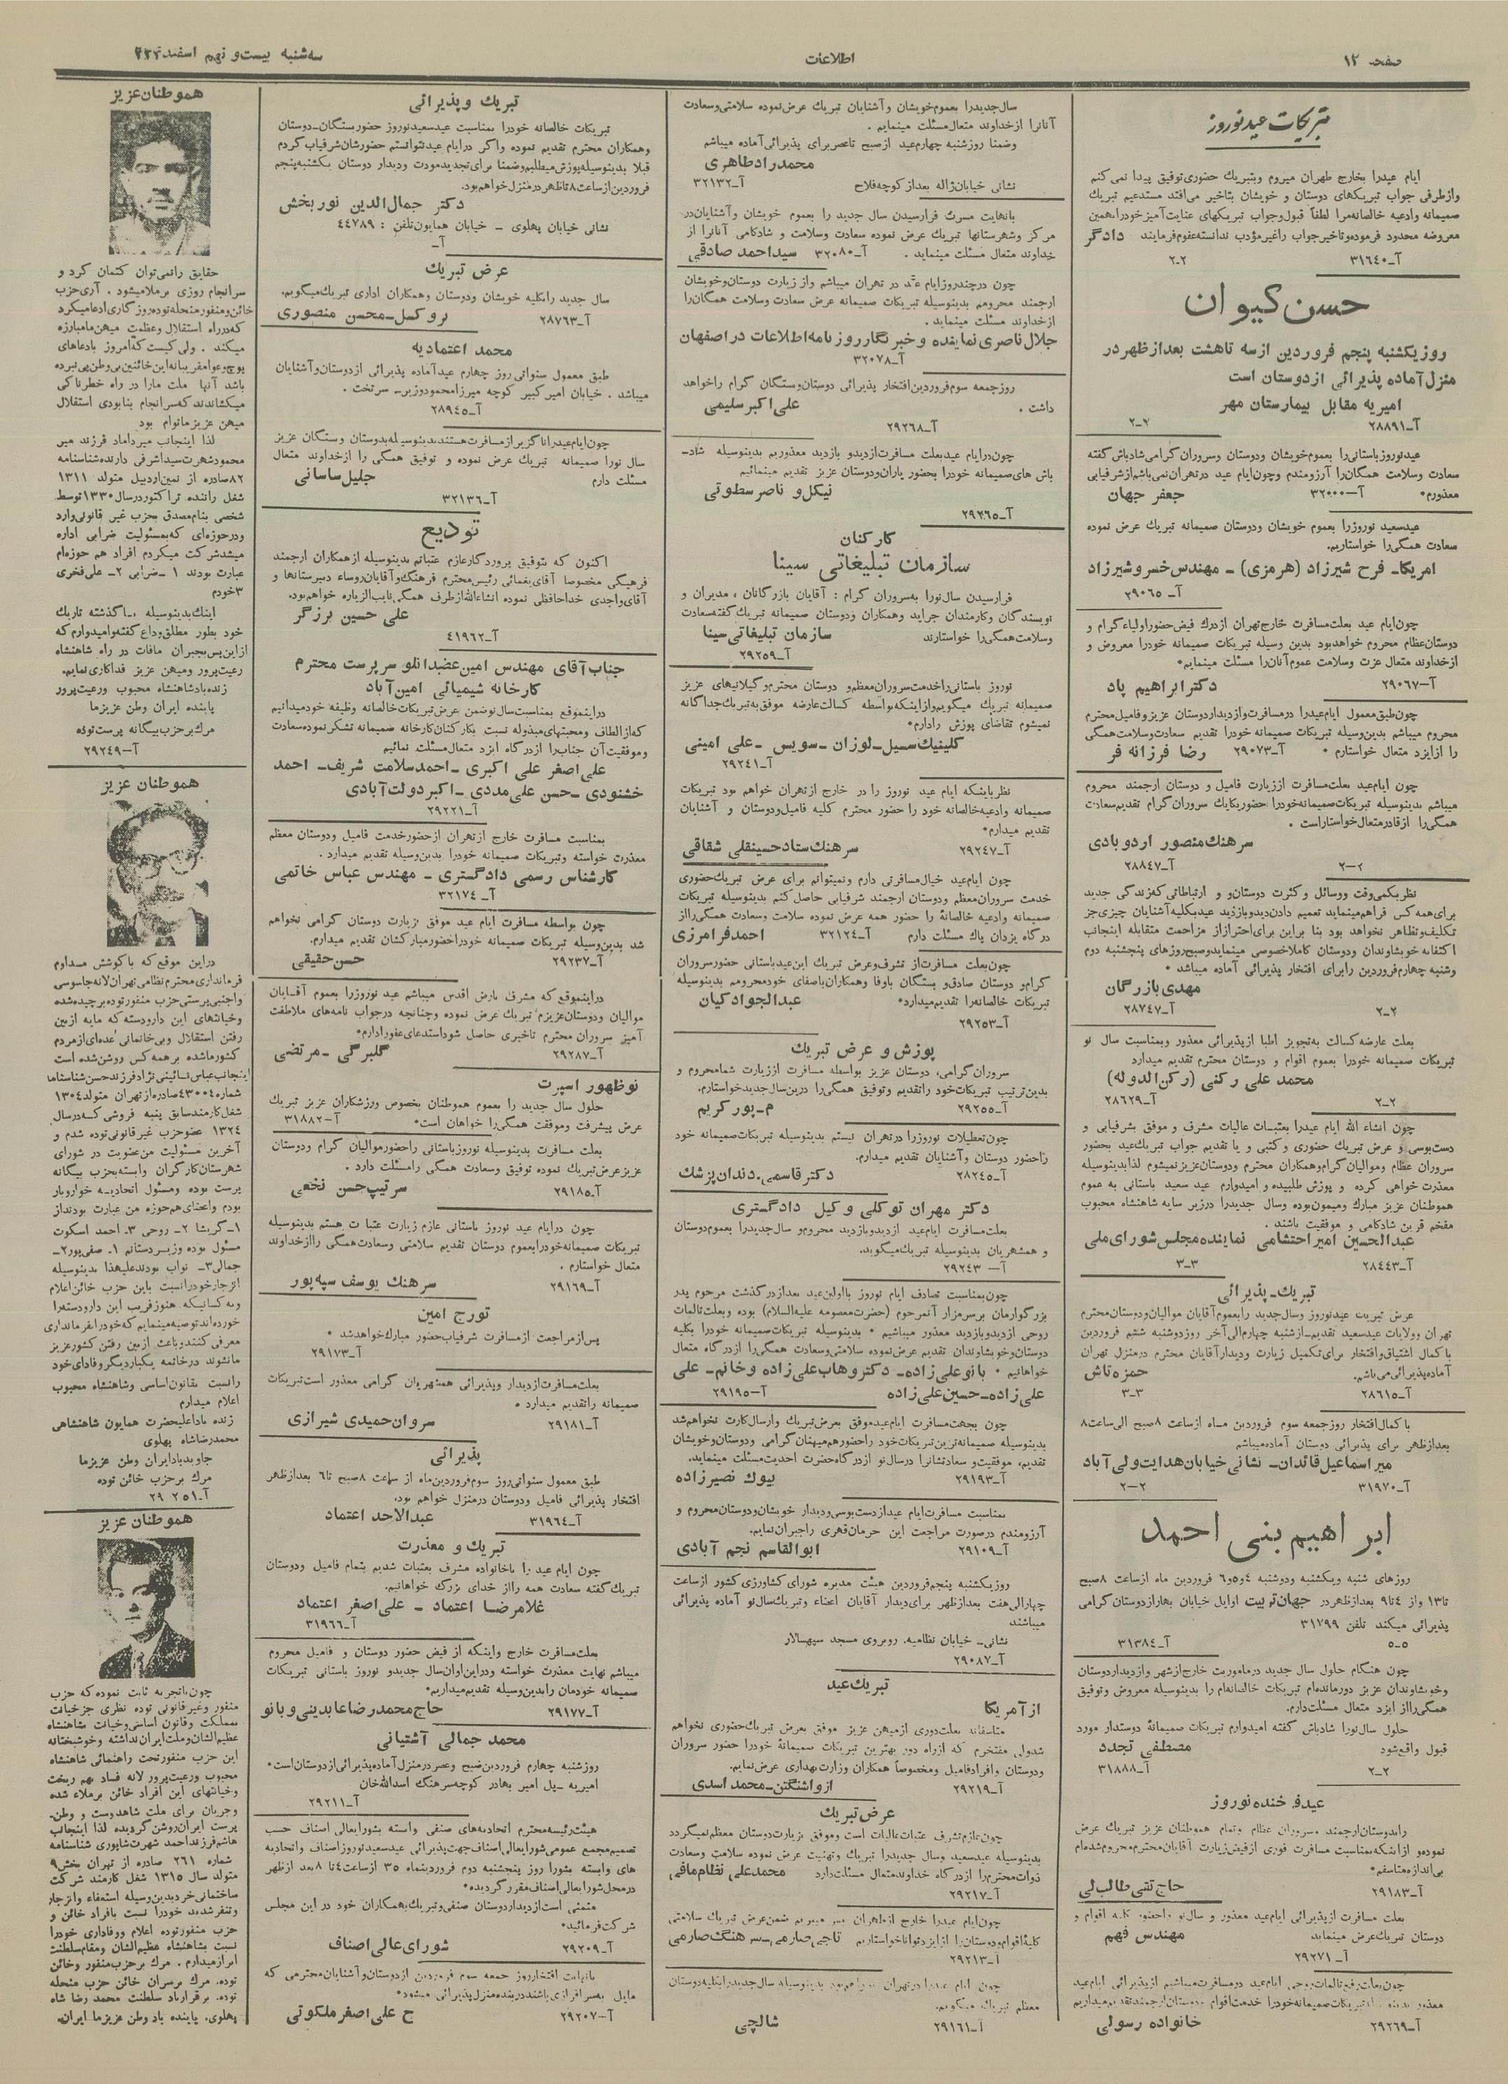 صفحه ۱۲
اطلاعات
سه‌شنبه بیست‌و نهم اسفند
تبریکات عید نوروز
ایام عیدرا بخارج طهران میروم وبتبریك حضوری توفیق پیدا نمی‌کنم
وازطرفی جواب تبریکهای دوستان و خویشان بتاخیر می‌افتد مستدعیم تبریك
صمیمانه وادعیه خالصانه‌مرا لطفاً قبول‌وجواب تبریکهای عنایت‌آمیز خودرابهمین
معروضه محدود فرموده‌وتاخیرجواب راغیرمؤدب ندانسته‌عفوفرمایند دادگر
آ-۳۱۶۴۰ ۲-۲
حسن کیوان
روز یکشنبه پنجم فروردین ازسه تاهشت بعدازظهر در
منزل آماده پذیرائی ازدوستان است
امیریه مقابل بیمارستان مهر
آ-۲۸۸۹۱ ۲-۲
عیدنوروزباستانی‌را بعموم‌خویشان ودوستان وسروران گرامی‌شادباش گفته
سعادت وسلامت همگان‌را آرزومندم وچون‌ایام عید درتهران‌نمی‌باشم‌ازشرفیابی
معذورم* آ-۳۲۰۰۰ جعفر جهان
عیدسعید نوروزرا بعموم خویشان ودوستان صمیمانه تبریك عرض نموده
سعادت همگی‌را خواستاریم.
امریکا- فرح شیرزاد (هرمزی) - مهندس خسروشیرزاد
آ-۲۹۰۶۵
چون‌ایام عید بعلت‌مسافرت خارج‌تهران ازدرك فیض‌حضوراولیاءگرام و
دوستان‌عظام محروم خواهدبود بدین وسیله تبریکات صمیمانه خودرا معروض و
ازخداوند متعال عزت وسلامت عموم‌آنان‌را مسئلت مینمایم*
آ-۲۹۰۶۷ دکترابراهیم پاد
چون‌طبق‌معمول ایام‌عیدرا درمسافرت‌وازدیداردوستان عزیزوفامیل‌محترم
محروم میباشم بدین‌وسیله تبریکات صمیمانه خودرا تقدیم سعادت‌وسلامت‌همگی
را ازایزد متعال خواستارم * آ-۲۹۰۷۳ رضا فرزانه فر
چون ایام‌عید بعلت‌مسافرت اززیارت فامیل و دوستان ارجمند محروم
میباشم بدینوسیله تبریکات‌صمیمانه‌خودرا حضوریکایك سروران‌گرام تقدیم‌سعادت
همگی‌را ازقادرمتعال‌خواستاراست.
سرهنك‌منصور اردوبادی
آ-۲۸۸۴۷ ۲-۲
نظربکمی‌وقت ووسائل وکثرت دوستان‌و و ارتباطاتی که‌زندگی جدید
برای‌همه‌کس فراهم‌مینماید تعمیم دادن‌دیدوبازدید عیدبکلیه‌آشنایان چیزی‌جز
تکلیف‌وتظاهر نخواهد بود بنا براین برای‌احترازاز مزاحمت متقابله اینجانب
اکتفابه خویشاوندان ودوستان کاملاخصوصی مینمایدوصبح‌روزهای پنجشنبه دوم
وشنبه چهارم‌فروردین رابرای افتخار پذیرائی آماده میباشد *
مهدی‌بازرگان
آ-۲۸۷۴۷ ۲-۲
بعلت عارضه‌کسالت به‌تجویز اطبا ازپذیرائی معذور وبمناسبت سال نو
تبریکات صمیمانه خودرا بعموم اقوام و دوستان محترم تقدیم میدارد
محمد علی رکنی (رکن‌الدوله)
آ-۲۸۶۲۹ ۲-۲
چون انشاء الله ایام عیدرا بعتبات عالیات مشرف و موفق بشرفیابی و
دست‌بوسی و عرض تبریك حضوری و کتبی و یا تقدیم جواب تبریك‌عید بحضور
سروران عظام وموالیان گرام‌وهمکاران محترم ودوستان‌عزیزنمیشوم لذابدینوسیله
معذرت خواهی کرده و پوزش طلبیده و امیدوارم عید سعید باستانی به عموم
هموطنان عزیز مبارك ومیمون‌بوده وسال جدیدرا درزیر سایه شاهنشاه محبوب
مفخم قرین شادکامی و موفقیت باشند.
عبدالحسین امیراحتشامی نماینده‌مجلس‌شورای‌ملی
آ-۲۸۴۴۳ ۳-۳
تبریك-پذیرائی
عرض تبریك عیدنوروز وسال‌جدید رابعموم‌آقایان موالیان‌ودوستان‌محترم
تهران وولایات عیدسعید تقدیم-ازشنبه چهارم‌الی‌آخر روزدوشنبه ششم فروردین
باکمال اشتیاق‌وافتخار برای‌تکمیل زیارت ودیدارآقایان محترم درمنزل تهران
آماده‌پذیرائی‌می‌باشم. حمزه‌تاش
آ-۲۸۶۱۵ ۳-۳
باکمال‌افتخار روزجمعه سوم فروردین مـاه ازساعت ۸صبح الی‌ساعت۸
بعدازظهر برای پذیرائی دوستان آماده‌میباشم
میراسماعیل قائدان- نشانی خیابان‌هدایت‌ولی‌آباد
آ-۳۱۹۷۰ ۲-۲
ابراهیم بنی احمد
روزهای شنبه ویکشنبه ودوشنبه ۴و۵و۶ فروردین ماه ازساعت ۸صبح
تا۱۳ واز ۴تا۹ بعدازظهردر جهان‌تربیت اوایل خیابان بهارازدوستان‌گرامی
پذیرائی میکند تلفن ۳۱۷۹۹
آ-۳۱۳۸۴ ۵-۵
چون هنگام حلول سال جدید درماموریت خارج‌ازشهر وازدیداردوستان
وخویشاوندان عزیز دورمانده‌ام تبریکات خالصانه‌ام را بدینوسیله معروض وتوفیق
همگی‌رااز ایزد متعال مسئلت‌دارم.
حلول سال‌نورا شادباش گفته امیدوارم تبریکات صمیمانهٔ دوستدار مورد
قبول واقع‌شود مصطفی تجدد
آ-۳۱۸۸۸ ۲-۲
آ-۲۹۱۸۳ حاج تقی طالب‌لی
بعلت مسافرت ازپذیرائی ایام‌عید معذور و سال‌نو
دوستان تبریك‌عرض مینماید مهندس فهم
آ-۲۹۲۷۱
آ-۲۹۲۶۹ خانواده رسولی
سال‌جدیدرا بعموم‌خویشان وآشنایان تبریك عرض‌نموده سلامتی‌وسعادت
آنانرا ازخداوند متعال‌مسئلت مینمایم.
وضمنا روزشنبه چهارم‌عید ازصبح تاعصربرای پذیرائی‌آماده میباشم
محمدرادطاهری
نشانی خیابان‌ژاله بعدازکوچه‌فلاح آ-۳۲۱۳۲
بانهایت مسرت فرارسیدن سال جدید را بعموم خویشان وآشنایان‌در
مرکز وشهرستانها تبریك عرض نموده سعادت وسلامت و شادکامی آنانرا از
خداوند متعال مسئلت مینمایم. آ-۳۲۰۸۰ سیداحمد صادقی
چون درچندروزایام عید در تهران میباشم واز زیارت دوستان‌وخویشان
ارجمند محرومم بدینوسیله تبریکات صمیمانه عرض سعادت وسلامت همگان‌را
ازخداوند مسئلت مینماید.
جلال‌ناصری‌نماینده وخبرنگارروزنامه‌اطلاعات دراصفهان
آ-۳۲۰۷۸
روزجمعه سوم‌فروردین‌افتخار پذیرائی دوستان‌وبستگان گرام راخواهد
داشت. علی‌اکبرسلیمی
آ-۲۹۲۶۸
چون‌درایام عیدبعلت مسافرت‌ازدیدو بازدید معذوریم بدینوسیله شاد-
باش های‌صمیمانه خودرا بحضور یاران‌ودوستان عزیز تقدیم مینمائیم
نیکل‌و ناصر سطوتی
آ-۲۹۲۶۵
کارکنان
سازمان تبلیغاتی سینا
فرارسیدن سال‌نورا به‌سروران گرام: آقایان بازرگانان، مدیران و
نویسندگان وکارمندان جراید وهمکاران ودوستان صمیمانه تبریك‌گفته‌سعادت
وسلامت‌همگی‌را خواستارند سازمان تبلیغاتی‌سینا
آ-۲۹۲۵۹
نوروز باستانی‌راخدمت‌سروران‌معظم‌و دوستان محترم‌وگیلانیهای عزیز
صمیمانه تبریك میگویم‌وازاینکه‌بواسطه کسالت‌عارضه موفق‌به‌تبریك‌جداگانه
نمیشوم تقاضای پوزش رادارم*
کلینیك‌سیل-لوزان-سویس-علی امینی
آ-۲۹۲۴۱
نظرباینکه ایام عید نوروز را در خارج ازتهران خواهم بود تبریکات
صمیمانه وادعیه‌خالصانه خود را حضور محترم کلیه فامیل‌ودوستان و آشنایان
تقدیم میدارم*
آ-۲۹۲۴۷ سرهنك‌ستادحسینقلی شقاقی
چون ایام‌عید خیال‌مسافرتی دارم ونمیتوانم برای عرض تبریك‌حضوری
خدمت سروران‌معظم ودوستان ارجمند شرفیابی حاصل‌کنم بدینوسیله تبریکات
صمیمانه وادعیه خالصانهٔ را حضور همه عرض نموده سلامت وسعادت همگی‌رااز
درگاه یزدان پاك مسئلت دارم آ-۳۲۱۲۴ احمدفرامرزی
چون‌بعلت مسافرت‌از تشرف‌وعرض تبریك این‌عیدباستانی حضورسروران
گرام‌و دوستان صادق‌و بستگان باوفا وهمکاران‌باصفای خودمحرومم بدینوسیله
تبریکات خالصانه‌را تقدیم‌میدارد* عبدالجوادکیان
آ-۲۹۲۵۳
پوزش و عرض تبریك
سروران‌گرامی، دوستان عزیز بواسطه مسافرت اززیارت شمامحروم و
بدین‌ترتیب تبریکات‌خود راتقدیم وتوفیق همگی‌را درین‌سال‌جدیدخواستارم.
آ-۲۹۲۵۵ م-پورکریم
چون‌تعطیلات نوروزرا درتهران نیستم بدینوسیله تبریکات‌صمیمانه خود
راحضور دوستان وآشنایان تقدیم میدارم.
آ-۲۸۲۴۵ دکترقاسمی.دندان‌پزشك
دکتر مهران توکلی وکیل دادگستری
بعلت‌مسافرت ایام‌عید ازدیدوبازدید محروم‌و سال‌جدیدرا بعموم‌دوستان
و همشهریان بدینوسیله تبریك‌میگوید.
آ-۲۹۲۴۳
چون‌بمناسبت تصادف ایام نوروز بااولین‌عید بعدازدرگذشت مرحوم پدر
بزرگوارمان برسرمزار آنمرحوم (حضرت‌معصومه علیه‌السلام) بوده وبعلت‌تالمات
روحی ازدیدوبازدید معذور میباشیم * بدینوسیله تبریکات‌صمیمانه خودرا بکلیه
دوستان‌وخویشاوندان تقدیم عرض‌نموده سلامتی‌وسعادت همگی‌را ازدرگاه متعال
خواهانیم * بانوعلی‌زاده- دکتروهاب‌علی‌زاده وخانم- علی
علی‌زاده-حسین‌علی‌زاده آ-۲۹۱۹۵
چون بجهت‌مسافرت ایام‌عیدموفق بعرض‌تبریك وارسال‌کارت نخواهم‌شد
بدینوسیله صمیمانه‌ترین‌تبریکات‌خود راحضورهم‌میهنان‌گرامی ودوستان‌وخویشان
تقدیم، موفقیت و سعادتشانرا درسال‌نو ازدرگاه‌حضرت احدیت مسئلت مینماید.
آ-۲۹۱۹۳ بیوك نصیرزاده
بمناسبت مسافرت‌ایام عیدازدست‌بوسی‌ودیدار خویشان‌ودوستان‌محروم و
آرزومندم درصورت مراجعت این حرمان‌قهری راجبران‌نمایم.
آ-۲۹۱۰۹ ابوالقاسم نجم آبادی
روزیکشنبه پنجم‌فروردین هیئت مدیره شورای‌کشاورزی کشور ازساعت
چهارالی‌هفت بعدازظهر برای‌دیدار آقایان اعضاء وتبریك‌سال‌نو آماده پذیرائی
میباشند
نشانی- خیابان نظامیه. روبروی مسجد سپهسالار
آ-۲۹۰۸۷
تبریك‌عید
ازآمریکا
متاسفانه بعلت‌دوری ازمیهن عزیز موفق بعرض تبریك‌حضوری نخواهم
شدولی مفتخرم که ازراه دور بهترین تبریکات صمیمانهٔ خودرا حضور سروران
ودوستان وافرادفامیل ومخصوصاً همکاران وزارت‌بهداری عرض‌نمایم.
آ-۲۹۲۱۹ ازواشنگتن-محمد اسدی
عرض‌تبریك
چون‌عازم‌تشرف عتبات‌عالیات است وموفق بزیارت‌دوستان معظم‌نمیگردد
بدینوسیله عیدسعید وسال جدیدرا تبریك وتهنیت عرض نموده سلامت وسعادت
ذوات‌محترم‌را ازدرگاه خداوندمتعال مسئلت‌دارد محمدعلی نظام‌مافی
آ-۲۹۲۱۷
آ-۲۹۲۱۳
آ-۲۹۱۶۱ شالچی
تبریك وپذیرائی
تبریکات خالصانه خودرا بمناسبت عیدسعیدنوروز حضوربستگان-دوستان
وهمکاران محترم تقدیم نموده واگر درایام عیدنتوانستم حضورشان‌شرفیاب‌گردم
قبلا بدینوسیله‌پوزش‌میطلبم‌وضمنا برای‌تجدیدمودت ودیدار دوستان یکشنبه‌پنجم
فروردین‌ازساعت۸تاظهردرمنزل‌خواهم‌بود.
دکتر جمال‌الدین نوربخش
نشانی خیابان پهلوی - خیابان همایون‌تلفن: ۴۴۷۸۹
آ-
عرض تبریك
سال جدید رابکلیه خویشان ودوستان وهمکاران اداری تبریك‌میگویم.
آ-۲۸۷۶۳ بروکسل-محسن منصوری
محمد اعتمادیه
طبق معمول سنواتی روز چهارم عیدآماده پذیرائی ازدوستان‌وآشنایان
میباشد. خیابان امیرکبیر کوچه میرزامحمودوزیر- سرتخت.
آ-۲۸۹۴۵
چون‌ایام‌عیدراناگزیرازمسافرت‌هستندبدینوسیله‌بدوستان وبستگان عزیز
سال نورا صمیمانه تبریك عرض نموده و توفیق همگی را ازخداوند متعال
مسئلت دارم جلیل‌ساسانی
آ-۳۲۱۳۶
تودیع
اکنون که بتوفیق پروردگارعازم عتباتم بدینوسیله ازهمکاران ارجمند
فرهنگی مخصوصا آقای‌یغمائی رئیس‌محترم فرهنگ‌وآقایان‌روساء دبیرستانها و
آقای‌واجدی خداحافظی نموده انشاءالله‌ازطرف همگی‌نایب‌الزیاره خواهم‌بود.
علی حسین برزگر
آ-۴۱۹۶۲
جناب‌آقای مهندس امین‌عضدانلو سرپرست محترم
کارخانه شیمیائی امین‌آباد
دراینموقع بمناسبت‌سال‌نوضمن عرض‌تبریکات‌خالصانه وظیفه خودمیدانیم
که‌ازالطاف ومحبتهای مبذوله نسبت بکارکنان‌کارخانه صمیمانه تشکرنموده‌سعادت
وموفقیت‌آن جناب‌را ازدرگاه ایزد متعال‌مسئلت نمائیم
علی‌اصغر علی اکبری -احمدسلامت شریف- احمد
خشنودی -حسن علی‌مددی -اکبردولت‌آبادی
آ-۲۹۲۲۱
بمناسبت مسافرت خارج ازتهران ازحضورخدمت فامیل ودوستان معظم
معذرت خواسته وتبریکات صمیمانه خودرا بدین‌وسیله تقدیم میدارد.
کارشناس رسمی دادگستری - مهندس عباس خاتمی
آ-۳۲۱۷۴
چون بواسطه مسافرت ایام عید موفق بزیارت دوستان گرامی نخواهم
شد بدین‌وسیله تبریکات صمیمانه خودراحضورمبارکشان تقدیم میدارم.
آ-۲۹۲۳۷ حسن‌حقیقی
دراینموقع‌که مشرف بارض اقدس میباشم عید نوروزرا بعموم آقـایان
موالیان ودوستان‌عزیزم تبریك عرض نموده وچنانچه درجواب نامه‌های ملاطفت
آمیز سروران محترم تاخیری حاصل شوداستدعای‌عفودارم*
آ-۲۹۲۸۷ گلبرگی-مرتضی
نوظهور اسپرت
حلول سال جدید را بعموم هموطنان بخصوص ورزشکاران عزیز تبریك
عرض پیشرفت وموفقیت همگی‌را خواهان است* آ-۳۱۸۸۲
بعلت مسافرت بدینوسیله نوروزباستانی راحضورموالیان گرام ودوستان
عزیزعرض‌تبریك نموده توفیق وسعادت همگی رامسئلت دارد.
آ-۲۹۱۸۵ سرتیپ‌حسن نخعی
چون درایام عید نوروز باستانی عازم زیارت عتبا ت هستم بدینوسیله
تبریکات صمیمانه‌خودرابعموم دوستان تقدیم سلامتی وسعادت‌همگی رااز‌خداوند
متعال خواستارم.
آ-۲۹۱۶۹ سرهنك یوسف سپه‌پور
تورج امین
پس‌ازمراجعت ازمسافرت شرفیاب‌حضور مبارك‌خواهدشد *
آ-۲۹۱۷۳
بعلت‌مسافرت‌ازدیدار وپذیرائی همشهریان گرامی معذور است‌تبریکات
صمیمانه راتقدیم میدارد *
آ-۲۹۱۸۱ سروان‌حمیدی شیرازی
پذیرائی
طبق معمول سنواتی‌روز سوم‌فروردین‌ماه از ساعت ۸صبح تا۶ بعدازظهر
افتخار پذیرائی فامیل ودوستان درمنزل خواهم بود.
آ-۳۱۹۶۴ عبدالاحد اعتماد
تبریك و معذرت
چون ایام عید را باخانواده مشرف بعتبات شدیم بتمام فامیل ودوستان
تبریك‌گفته سعادت همه رااز خدای بزرك خواهانیم.
غلامرضا اعتماد - علی‌اصغر اعتماد
آ-۳۱۹۶۶
بعلت‌مسافرت خارج واینکه از فیض حضور دوستان و فامیل محروم
میباشم نهایت معذرت خواسته ودراین‌اوان‌سال جدیدو نوروز باستانی تبریکات
صمیمانه خودمان رابدین‌وسیله تقدیم‌میداریم*
آ-۲۹۱۷۷ حاج‌محمدرضاعابدینی‌وبانو
محمد جمالی آشتیانی
روزشنبه چهارم فروردین‌صبح وعصردرمنزل‌آماده‌پذیرائی ازدوستان‌است*
امیریه -پل امیر بهادر کوچه‌سرهنگ اسدالله‌خان
آ-۲۹۲۱۱
هیئت‌رئیسه‌محترم اتحادیه‌های صنفی وابسته بشورایعالی اصناف حسب
تصمیم‌مجمع عمومی‌شورایعالی‌اصناف‌جهت‌پذیرائی عیدسعیدنوروزاصناف واتحادیه
های وابسته بشورا روز پنجشنبه دوم فروردینماه ۳۵ ازساعت۴تا ۸بعد ازظهر
درمحل‌شورایعالی‌اصناف‌مقررگردیده*
متمنی است‌ازدیداردوستان صنفی‌وتبریك‌بهمکاران خود در این مجلس
شرکت‌فرمائید*
آ-۲۹۲۰۹ شورای‌عالی‌اصناف
آ-۲۹۲۰۷ ح علی‌اصغر ملکوتی
هموطنان عزیز
حقایق رانمی‌توان کتمان کرد و
سرانجام روزی برملامیشود. آری‌حزب
خائن‌ومنفورمنحله‌توده‌روزگاری‌ادعامیکرد
که‌درراه استقلال وعظمت میهن‌مامبارزه
میکند. ولی‌کیست که‌امروز بادعاهای
پوچ‌وعوامفریبانه‌این‌خائنین‌بی‌وطن‌پی‌نبرده
باشد آنها ملت مارا در راه خطرناکی
میکشاندند که‌سرانجام بنابودی استقلال
میهن عزیزماتوام بود
لذا اینجانب میرداماد فرزند میر
محمودشهرت‌سیداشرفی دارنده‌شناسنامه
۸۲صادره از نمین‌اردبیل متولد ۱۳۱۱
شغل راننده تراکتوردرسال۱۳۳۰توسط
شخصی بنام‌مصدق بحزب غیر قانونی‌وارد
ودرحوزه‌ای که‌بمسئولیت ضرابی اداره
میشدشرکت میکردم افراد هم حوزه‌ام
عبارت بودند ۱-ضرابی ۲- علی‌فخری
۳خودم
اینك‌بدینوسیله باگذشته تاریك
خود بطور مطلق‌وداع‌گفته‌وامیدوارم که
ازاین‌پس‌بجبران مافات در راه شاهنشاه
رعیت‌پرور ومیهن عزیز فداکاری‌نمایم.
زنده‌بادشاهنشاه محبوب ورعیت‌پرور
پاینده ایران وطن عزیزما
مرك‌برحزب‌بیگانه پرست‌توده
آ-۲۹۲۴۹
هموطنان عزیز
دراین موقع که باکوشش مـداوم
فرمانداری‌محترم‌نظامی‌تهران‌لانه‌جاسوسی
واجنبی‌پرستی‌حزب منفورتوده‌برچیده‌شده
وخیانتهای این دارودسته‌که مایه ازبین
رفتن استقلال وبی‌خانمانی عده‌ای‌ازمردم
کشورماشده برهمه‌کس روشن‌شده است
اینجانب‌عباس‌نائینی‌نژادفرزندحسن‌شناسنامه
شماره۴۳۰۰۴صادره‌ازتهران متولد۱۳۰۴
شغل‌کارمندسابق پنبه فروشی‌که‌درسال
۱۳۲۴ عضوحزب غیرقانونی‌توده شدم و
آخرین مسئولیت من‌عضویت در شورای
شهرستان‌کارگران وابسته‌بحزب بیگانه
پرست بوده ومسئول اتحادیـه خواروبار
بودم واعضای‌هم‌حوزه من عبارت بودنداز
۱-گریشا ۲- روحی ۳- احمد اسکوت
مسئول بوده وزیردستانم ۱- صفی‌پور۲-
جمالی۳- نواب بودندعلیهذا بدینوسیله
انزجارخودرانسبت باین حزب خائن‌اعلام
وبه‌کسانیکه هنوزفریب این دارودسته‌را
خورده‌اندتوصیه‌مینمایم‌که‌خودرابفرمانداری
معرفی‌کنندوباعث ازبین رفتن کشورعزیز
مانشوند درخاتمه یکباردیگروفاداری‌خود
رانسبت بقانون‌اساسی وشاهنشاه محبوب
اعلام میدارم
زنده باداعلیحضرت همایون شاهنشاهی
محمدرضاشاه پهلوی
جاویدبادایران وطن عزیزما
مرك برحزب خائن توده
آ-۲۹۲۵۱
هموطنان عزیز
چون‌باتجربه ثابت نموده‌که حزب
منفور وغیرقانونی توده نظری جزخیانت
بمملکت وقانون اساسی‌وخیانت بشاهنشاه
عظیم‌الشان وملت‌ایران‌نداشته وخوشبختانه
این حزب منفورتحت راهنمائی شاهنشاه
محبوب ورعیت‌پرور لانه فساد بهم ریخت
وخیانتهای این افراد خائن برملاء شده
وجریان برای ملت شاهدوست و وطن-
پرست ایران‌روشن‌گردیده لذا اینجانب
هاشم‌فرزنداحمد شهرت‌شاپوری شناسنامه
شماره ۲۶۱ صادره از تهران بخش۹
متولد سال ۱۳۱۵ شغل کارمند شرکت
ساختمانی خردبدین‌وسیله استعفاء وانزجار
وتنفرشدید خودرا نسبت بافراد خائن و
حزب منفورتوده اعلام ووفاداری خودرا
نسبت بشاهنشاه عظیم‌الشان ومقام‌سلطنت
ابرازمیدارم. مرك برحزب‌منفور وخائن
توده. مرك برسران خائن حزب منحله
توده. برقرارباد سلطنت محمد رضا شاه
پهلوی. پاینده باد وطن عزیزما ایران.